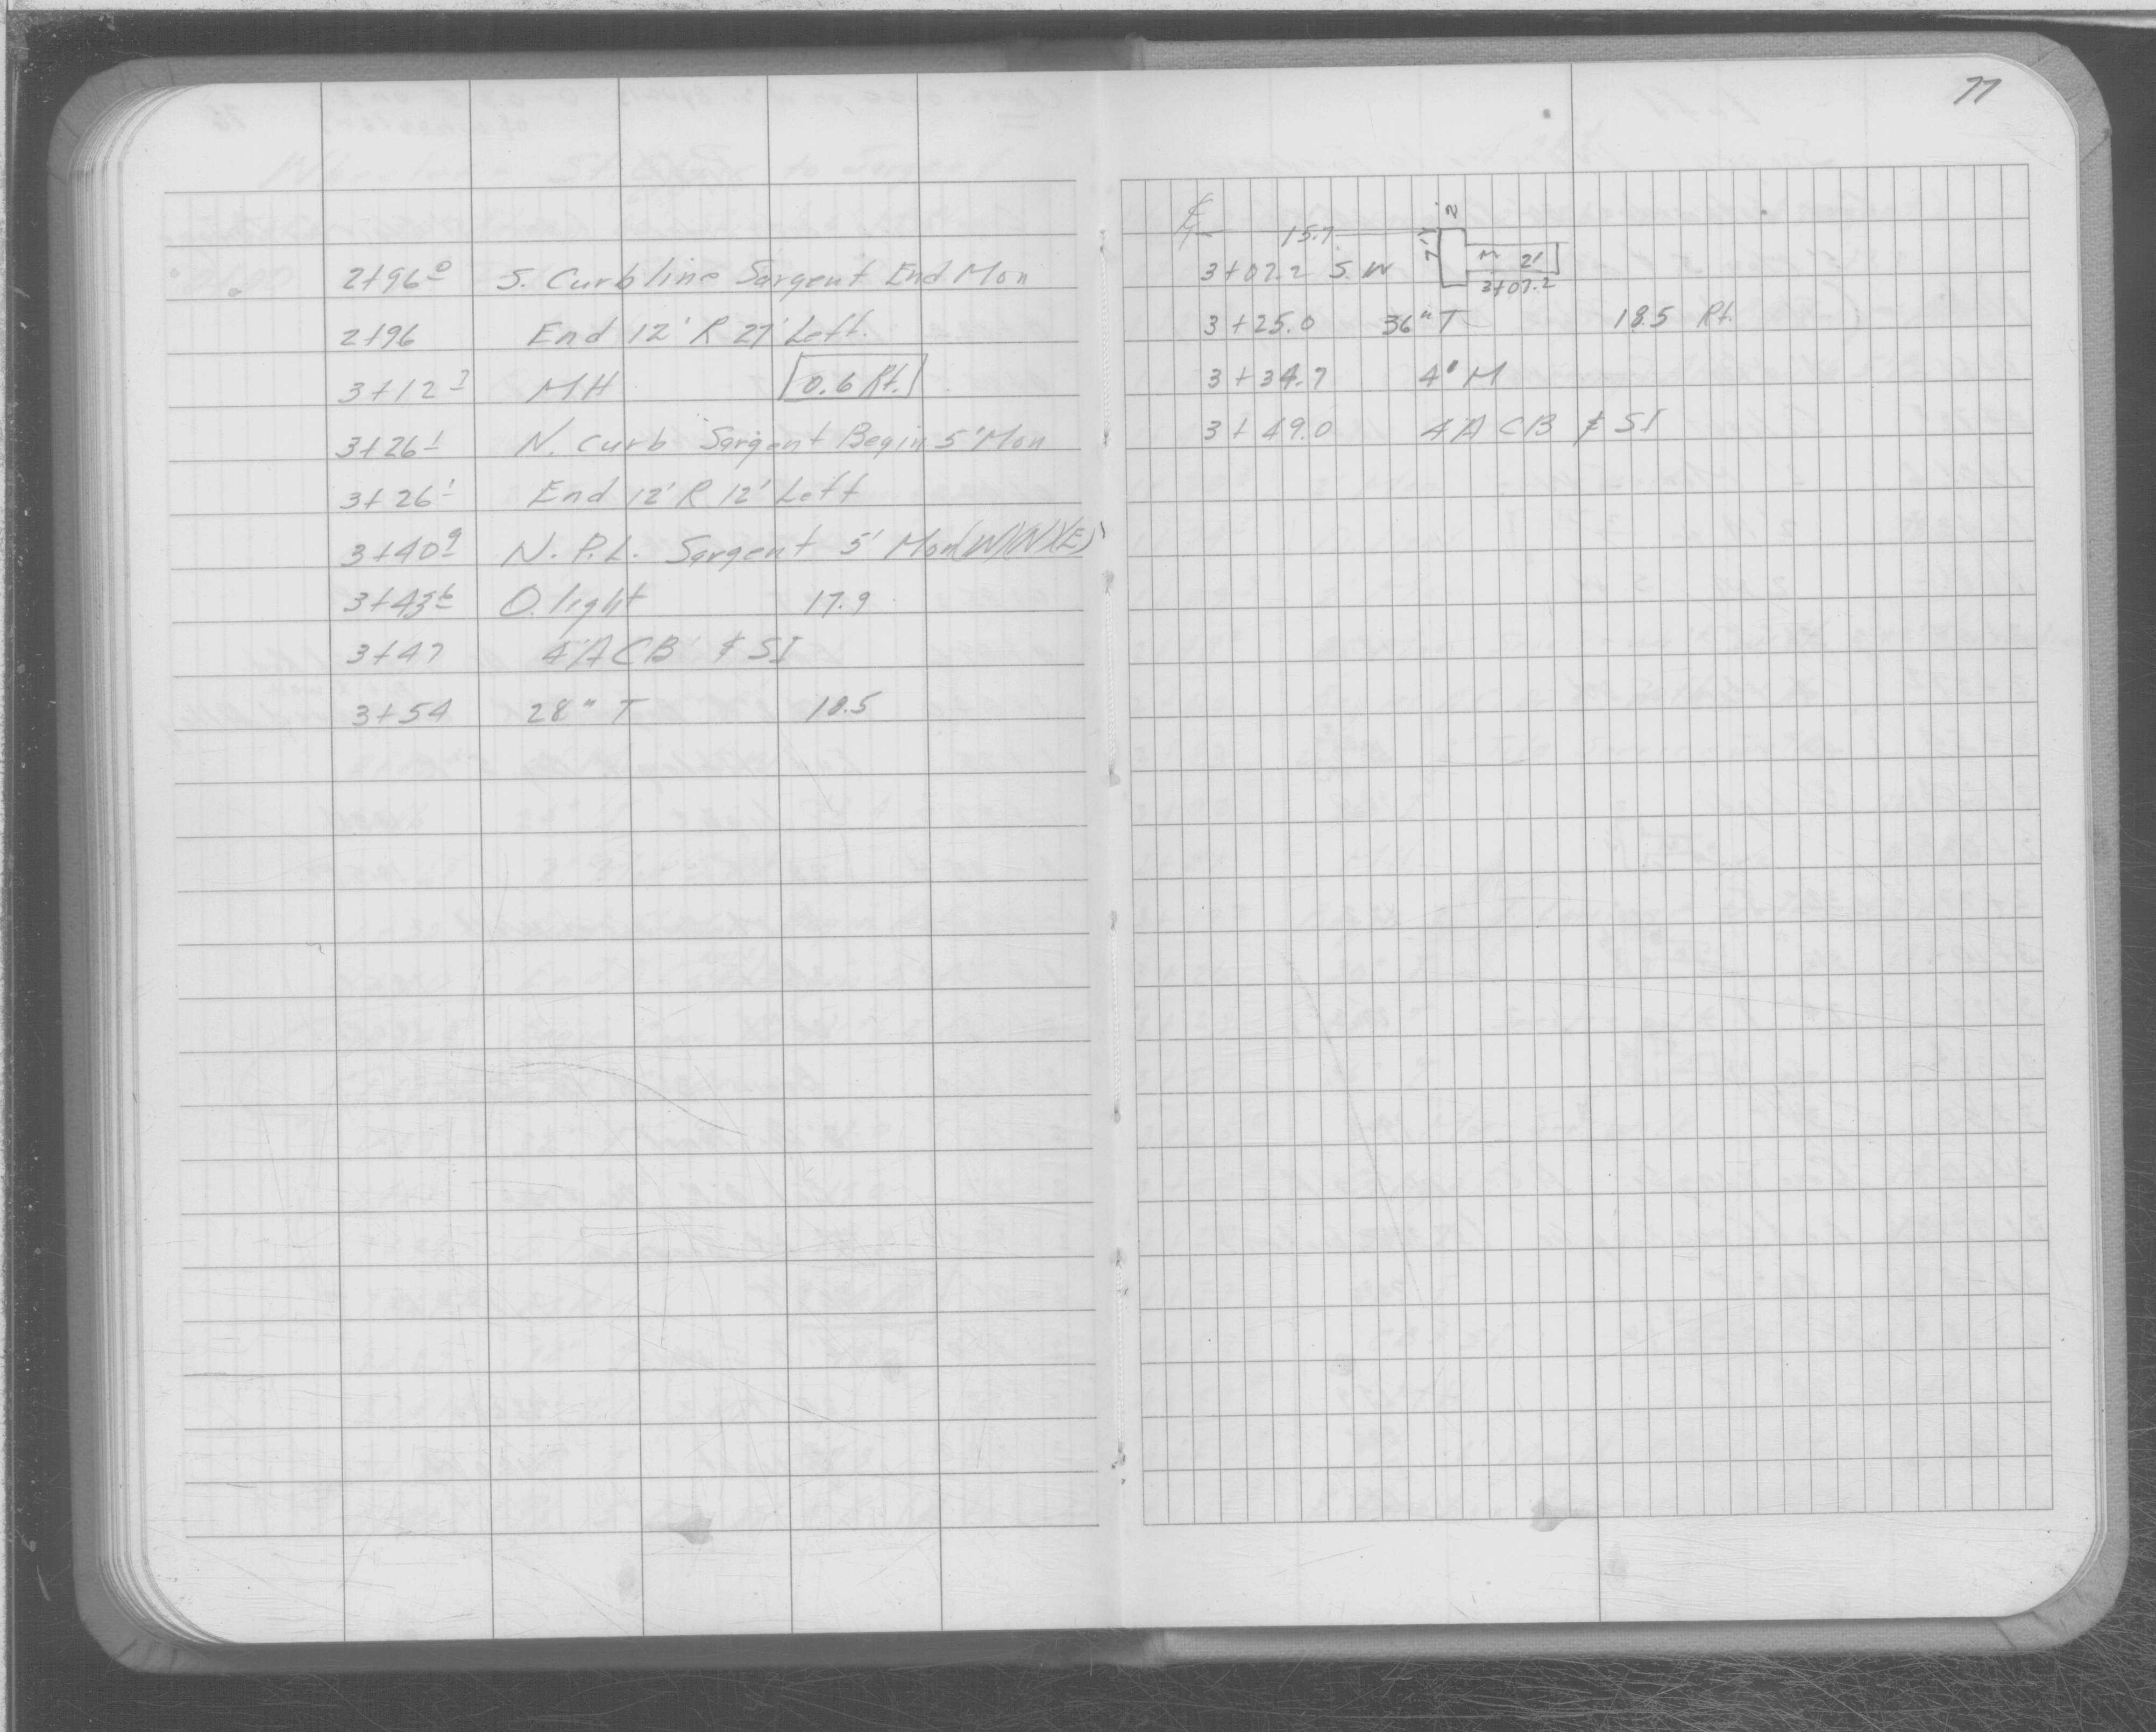 2+96⁰ S. Curbline Sargent End Mon
2+96 End 12' R 27' Left.
3+12⁷ MH 0.6 Rt.
3+26¹ N. Curb Sargent Begin 5' Mon
3+26¹ End 12' R 12' Left
3+40⁹ N. P.L. Sargent 5' Mon(W)(N)(E)
3+43⁶ O. light 17.9
3+47 4'A CB & SI
3+54 28" T 18.5
77
℄ 15.7 2
3+07.2 S.W M 21
3+07.2
3+25.0 36" T 18.5 Rt.
3+34.7 4" M
3+49.0 4'A CB & SI